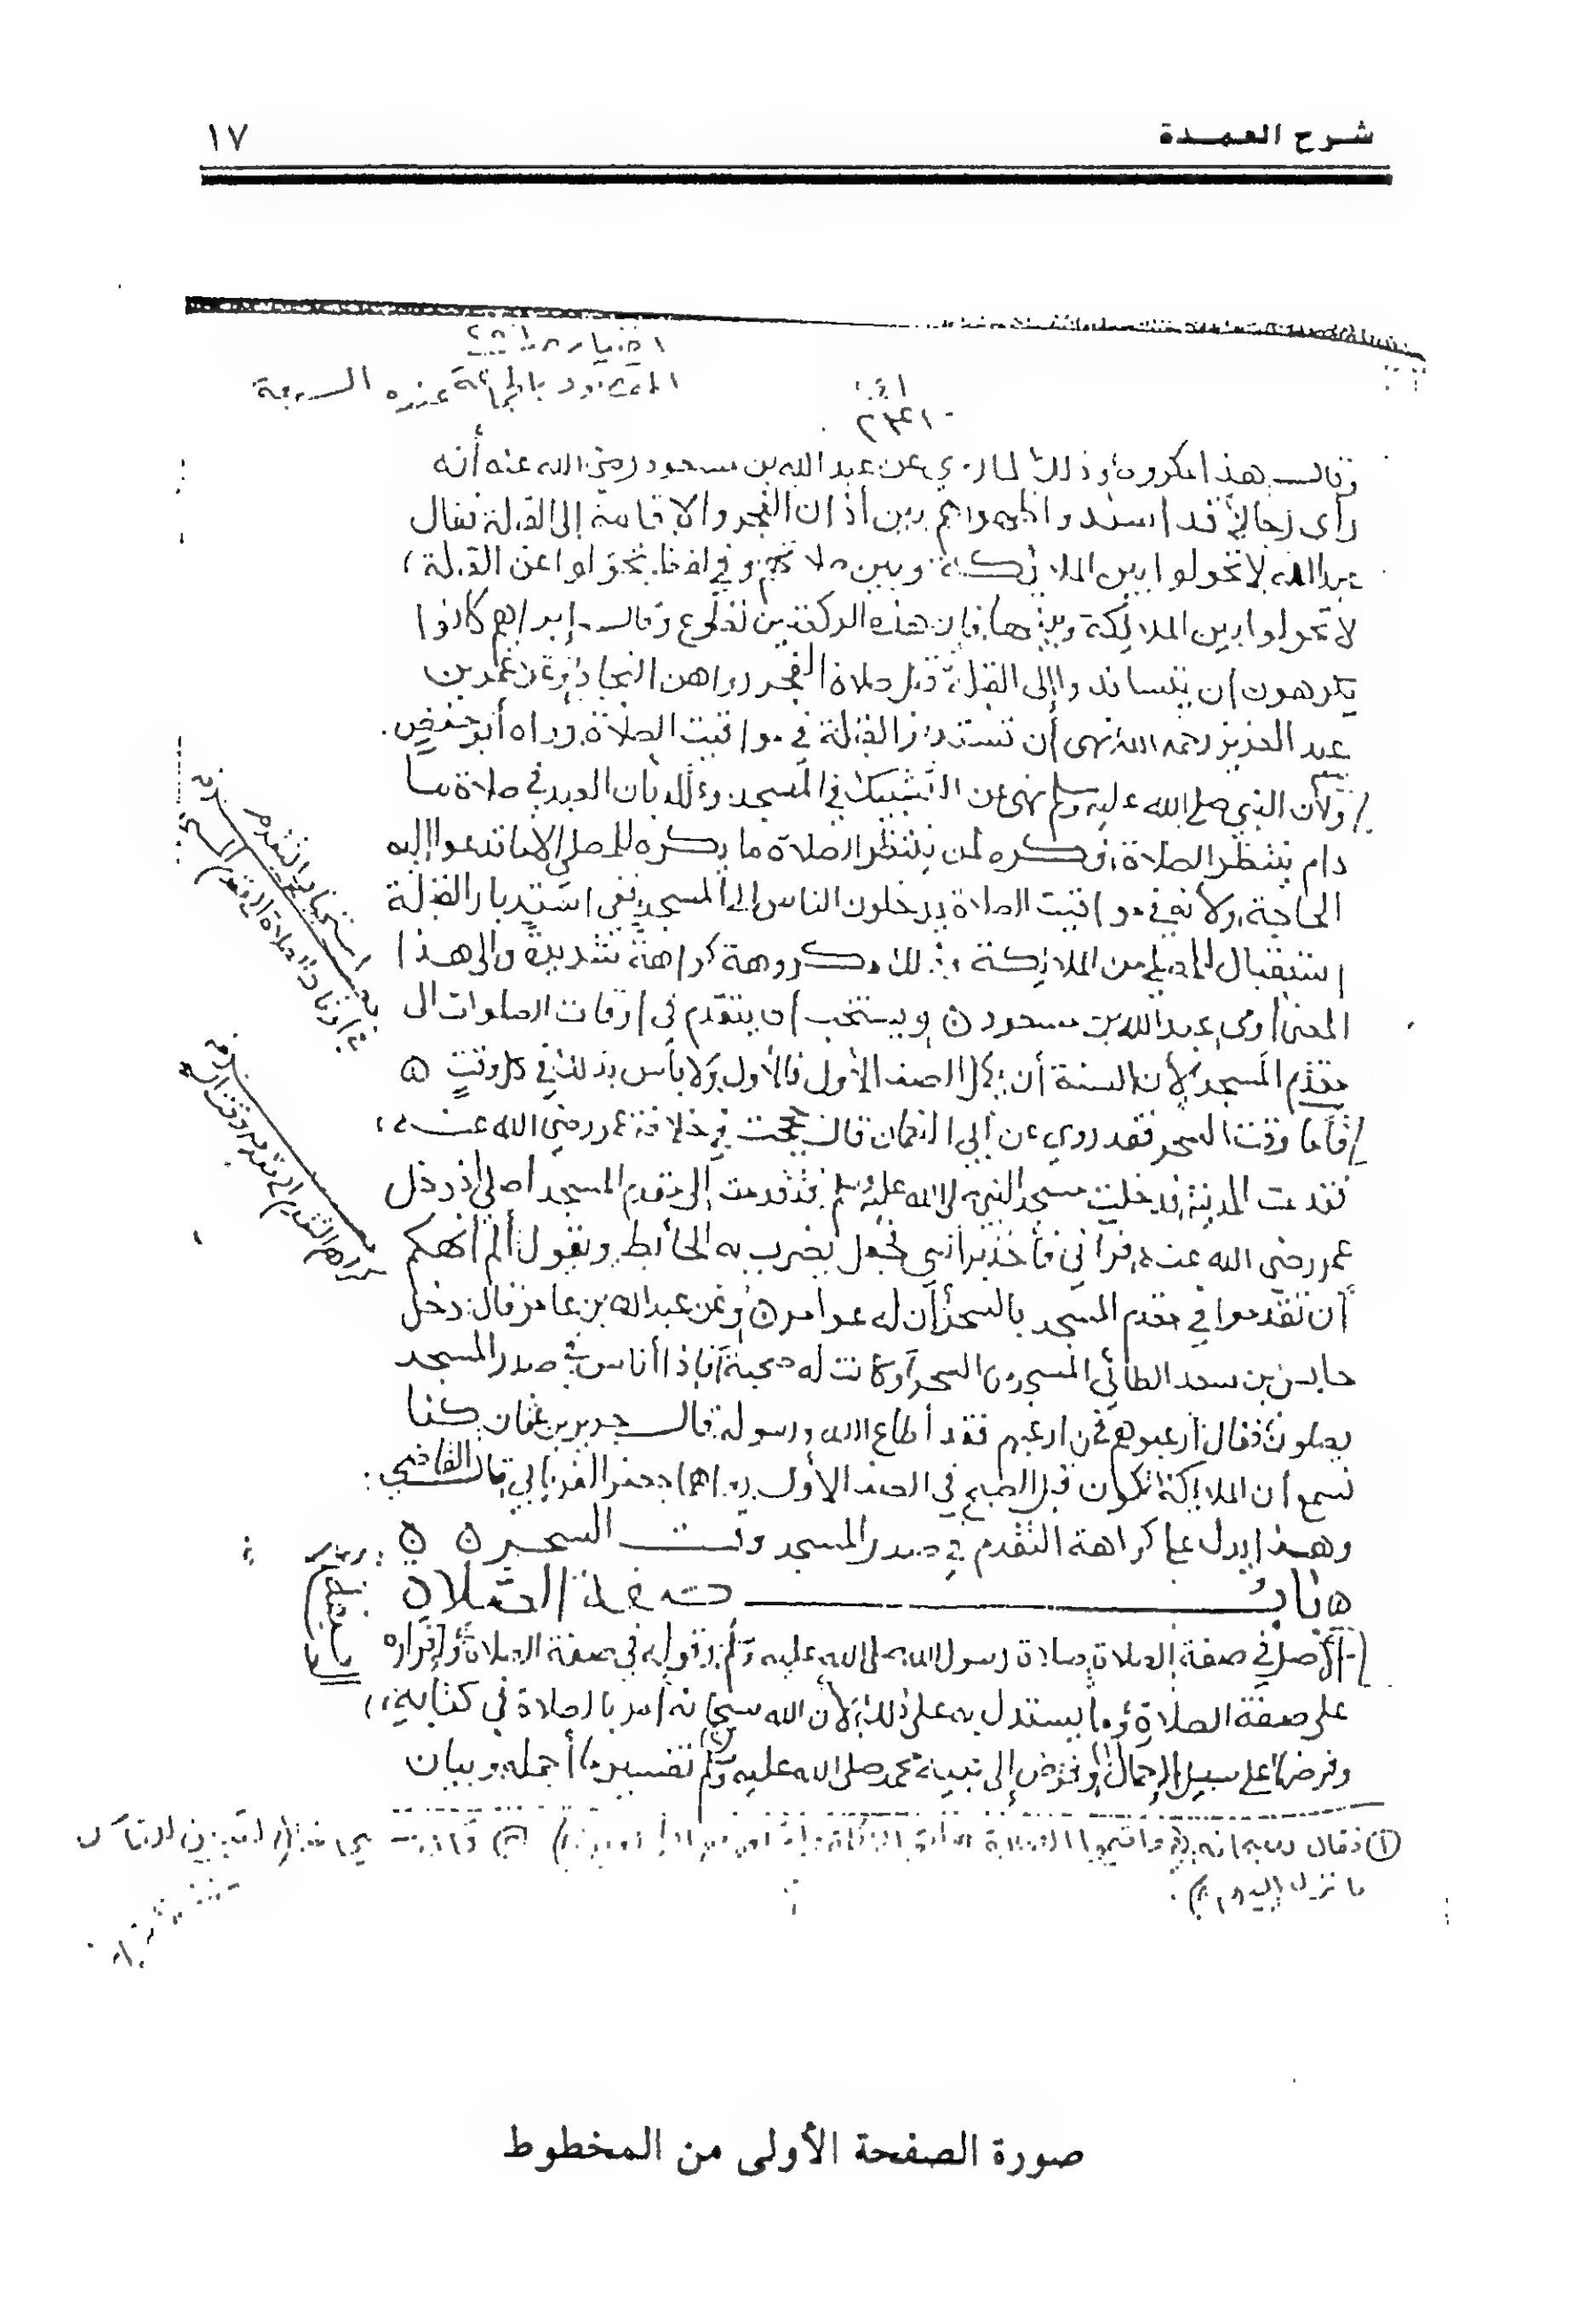 شرح العمدة
١٧
وقال هذا مكروه وذلك لما روي عن عبد الله بن مسعود رضي الله عنه أنه
رأى رجالا قد أسندوا ظهورهم بين أذان الفجر والإقامة إلى القبلة فقال
عبد الله لا تحولوا بين الملائكة وبين صلاتهم وفي لفظ تحولوا عن القبلة
لا تحولوا بين الملائكة وبينها فإن هذه الركعتين تطوع وقال إبراهيم كانوا
يكرهون أن يتساندوا إلى القبلة قبل صلاة الفجر رواهن النجاد وعن عمر بن
عبد العزيز رحمه الله نهى أن تستدبر القبلة في مواقيت الصلاة رواه أبو حفص
ولأن النبي صلى الله عليه وسلم نهى عن التشبيك في المسجد وعلله بأن العبد في صلاة ما
دام ينتظر الصلاة فكره لمن ينتظر الصلاة ما يكره للمصلي إلا ما تدعوا إليه
الحاجة ولأنه في مواقيت الصلاة يدخلون الناس إلى المسجد ففي استدبار القبلة
استقبال للمصلي من الملائكة وذلك مكروهة كراهة شديدة وإلى هذا
المعنى أومى عبد الله بن مسعود ويستحب أن يتقدم في أوقات الصلوات إلى
مقدم المسجد لأن السنة أن يكمل الصف الأول فالأول ولا بأس بذلك في كل وقت
فأما وقت السحر فقد روي عن أبي النعمان قال حججت في خلافة عمر رضي الله عنه
فقدمت المدينة فدخلت مسجد النبي صلى الله عليه وسلم فتقدمت إلى مقدم المسجد أصلي إذ دخل
عمر رضي الله عنه فرآني فأخذ برأسي فجعل يضرب به الحائط ويقول ألم أنهكم
أن تقدموا في مقدم المسجد بالسحر إن له عوامر وعن عبد الله بن عامر قال: دخل
حابس بن سعد الطائي المسجد من السحر وكانت له صحبة فإذا أناس في صدر المسجد
يصلون فقال أرعبوهم فمن أرعبهم فقد أطاع الله ورسوله قال جرير بن عثمان كنا
نسمع أن الملائكة تكون قبل الصبح في الصف الأول رواهما جعفر الفريابي قال القاضي:
وهذا يدل على كراهة التقدم في صدر المسجد وقت السحر
باب صفة الصلاة
الأصل في صفة الصلاة صلاة رسول الله صلى الله عليه وسلم وقوله في صفة الصلاة وإقراره
على صفة الصلاة وما يستدل به على ذلك لأن الله سبحانه أمر بالصلاة في كتابه
وفرضها على سبيل الإجمال (١) وفوض إلى نبيه محمد صلى الله عليه وسلم (٢) تفسير ما أجمله وبيان
ما نزل إليهم
صورة الصفحة الأولى من المخطوط